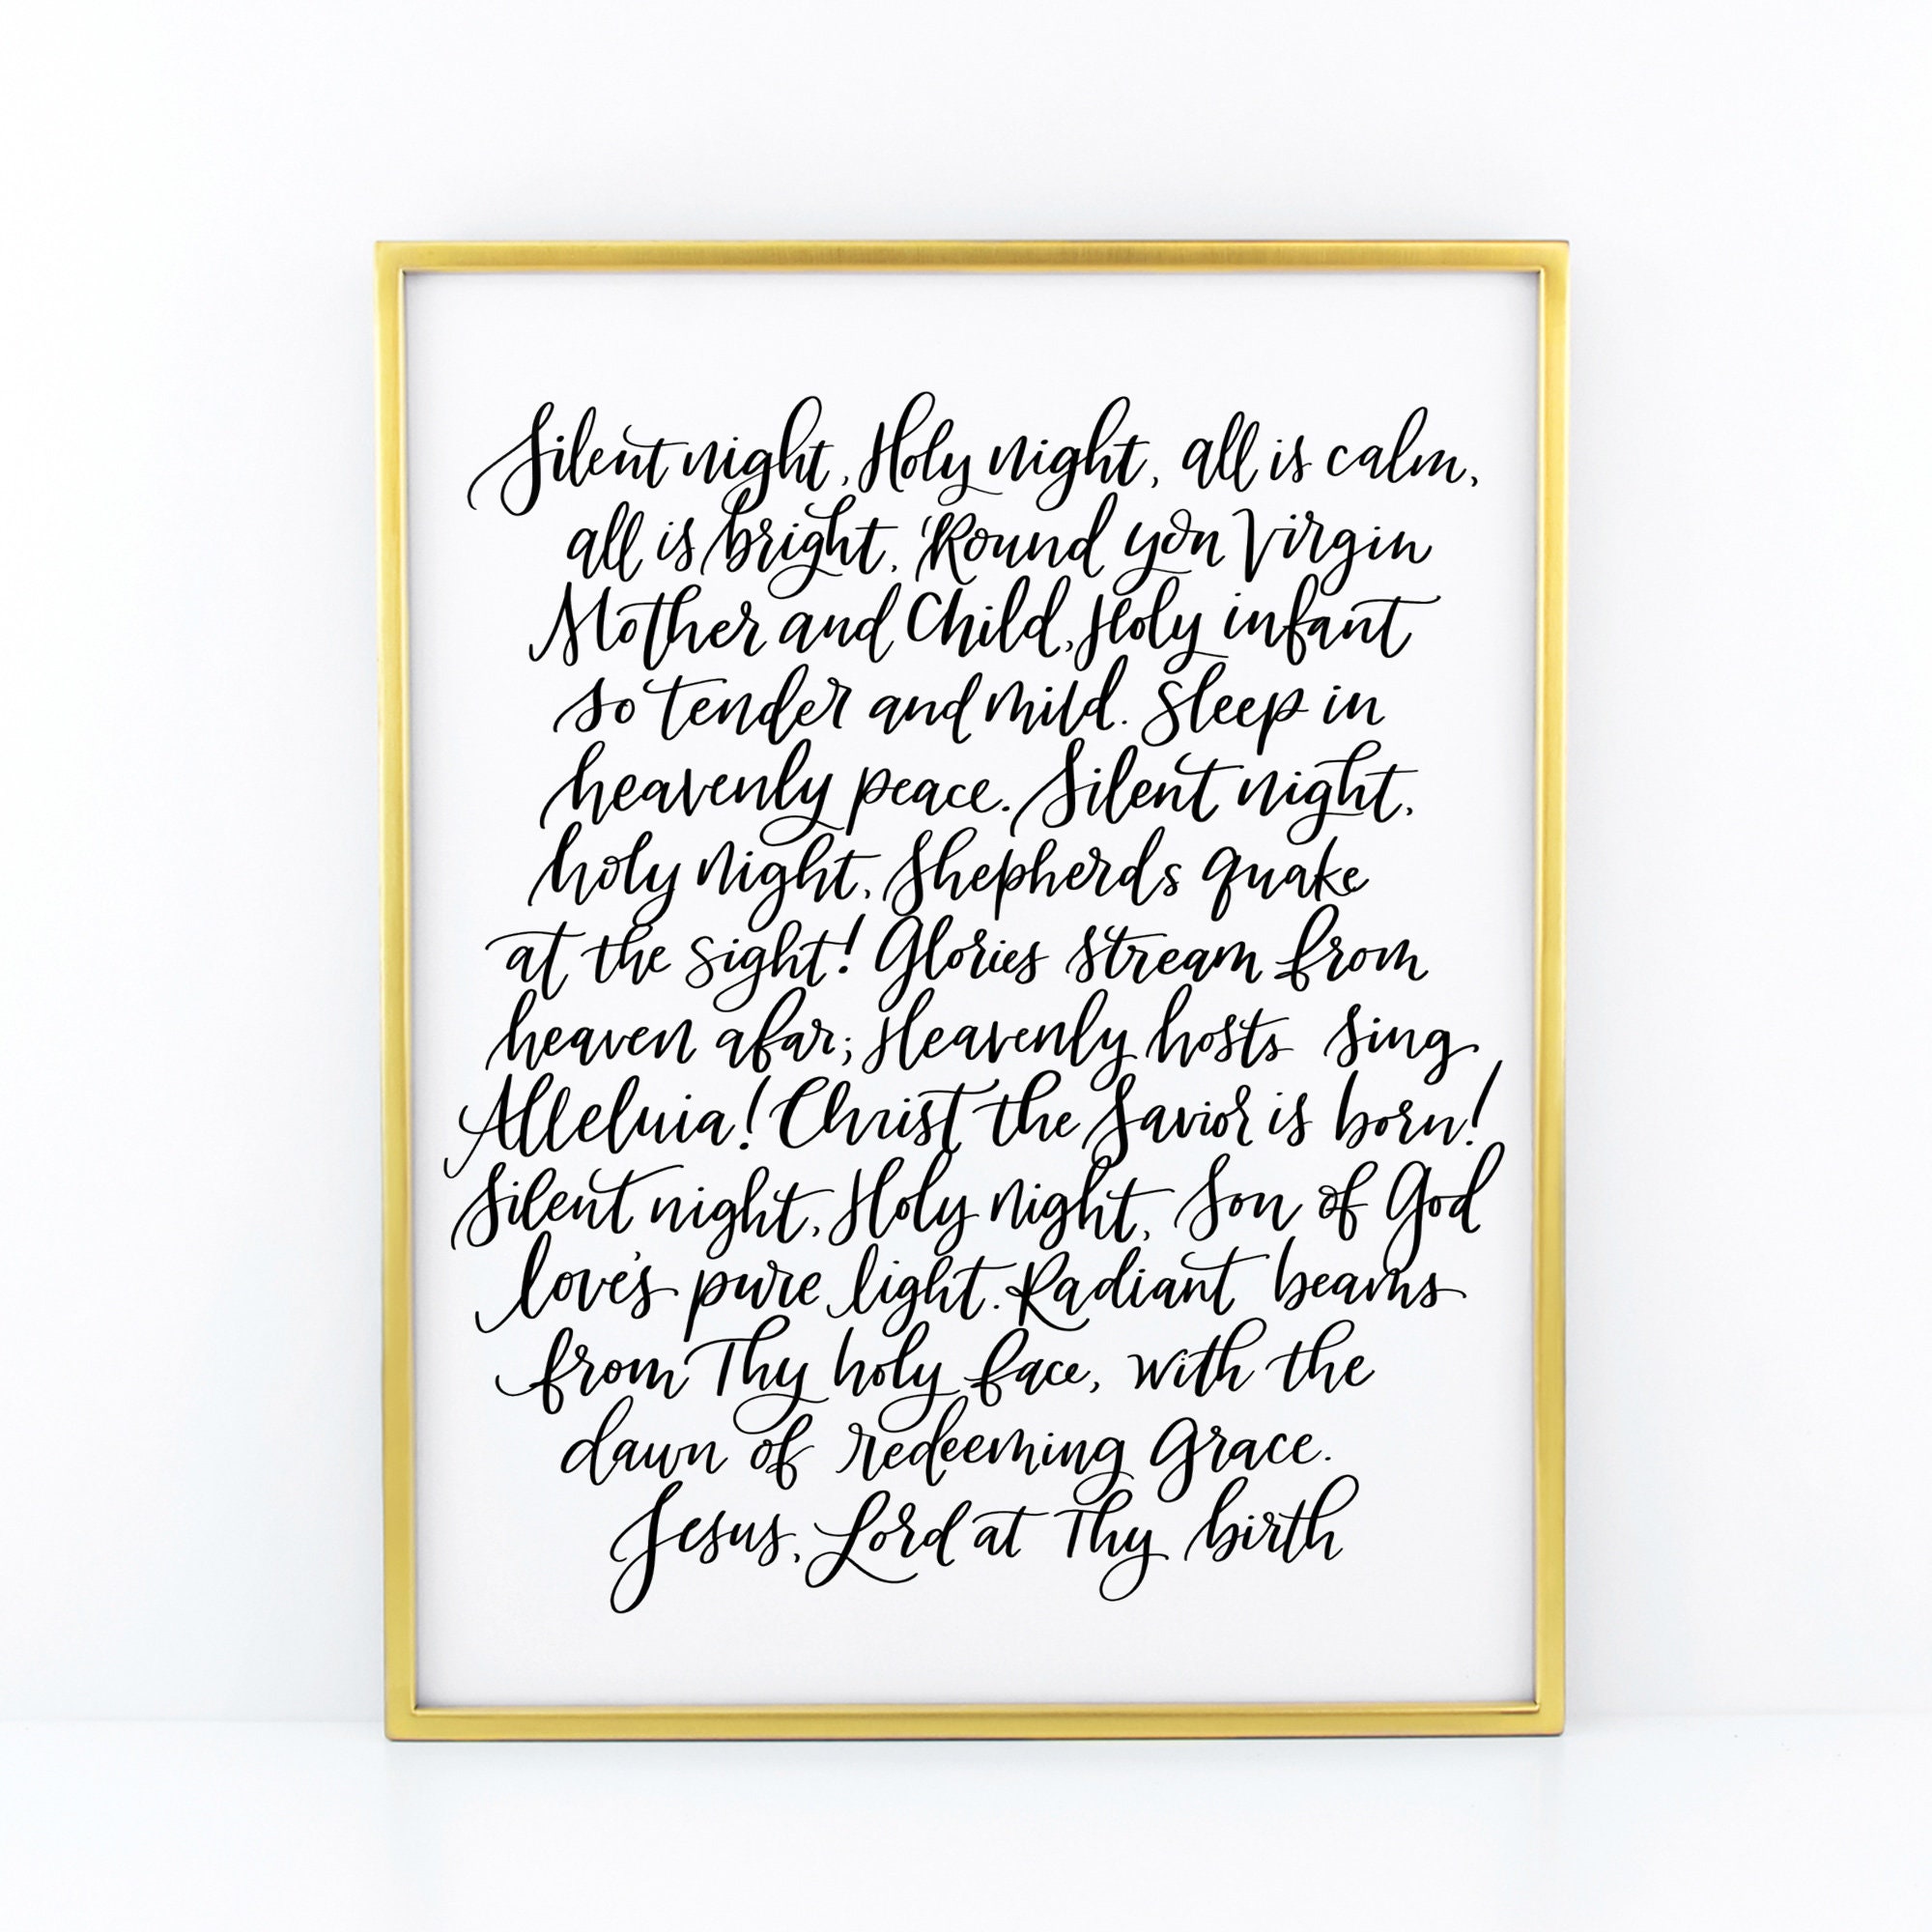 Silent night, Holy night, all is calm,
all is bright. 'Round yon Virgin
Mother and Child, Holy infant
so tender and mild. Sleep in
heavenly peace. Silent night,
holy night, Shepherds quake
at the sight! Glories stream from
heaven afar; Heavenly hosts sing
Alleluia! Christ the Savior is born!
Silent night, Holy night, Son of God
love's pure light. Radiant beams
from Thy holy face, with the
dawn of redeeming Grace.
Jesus, Lord at Thy birth